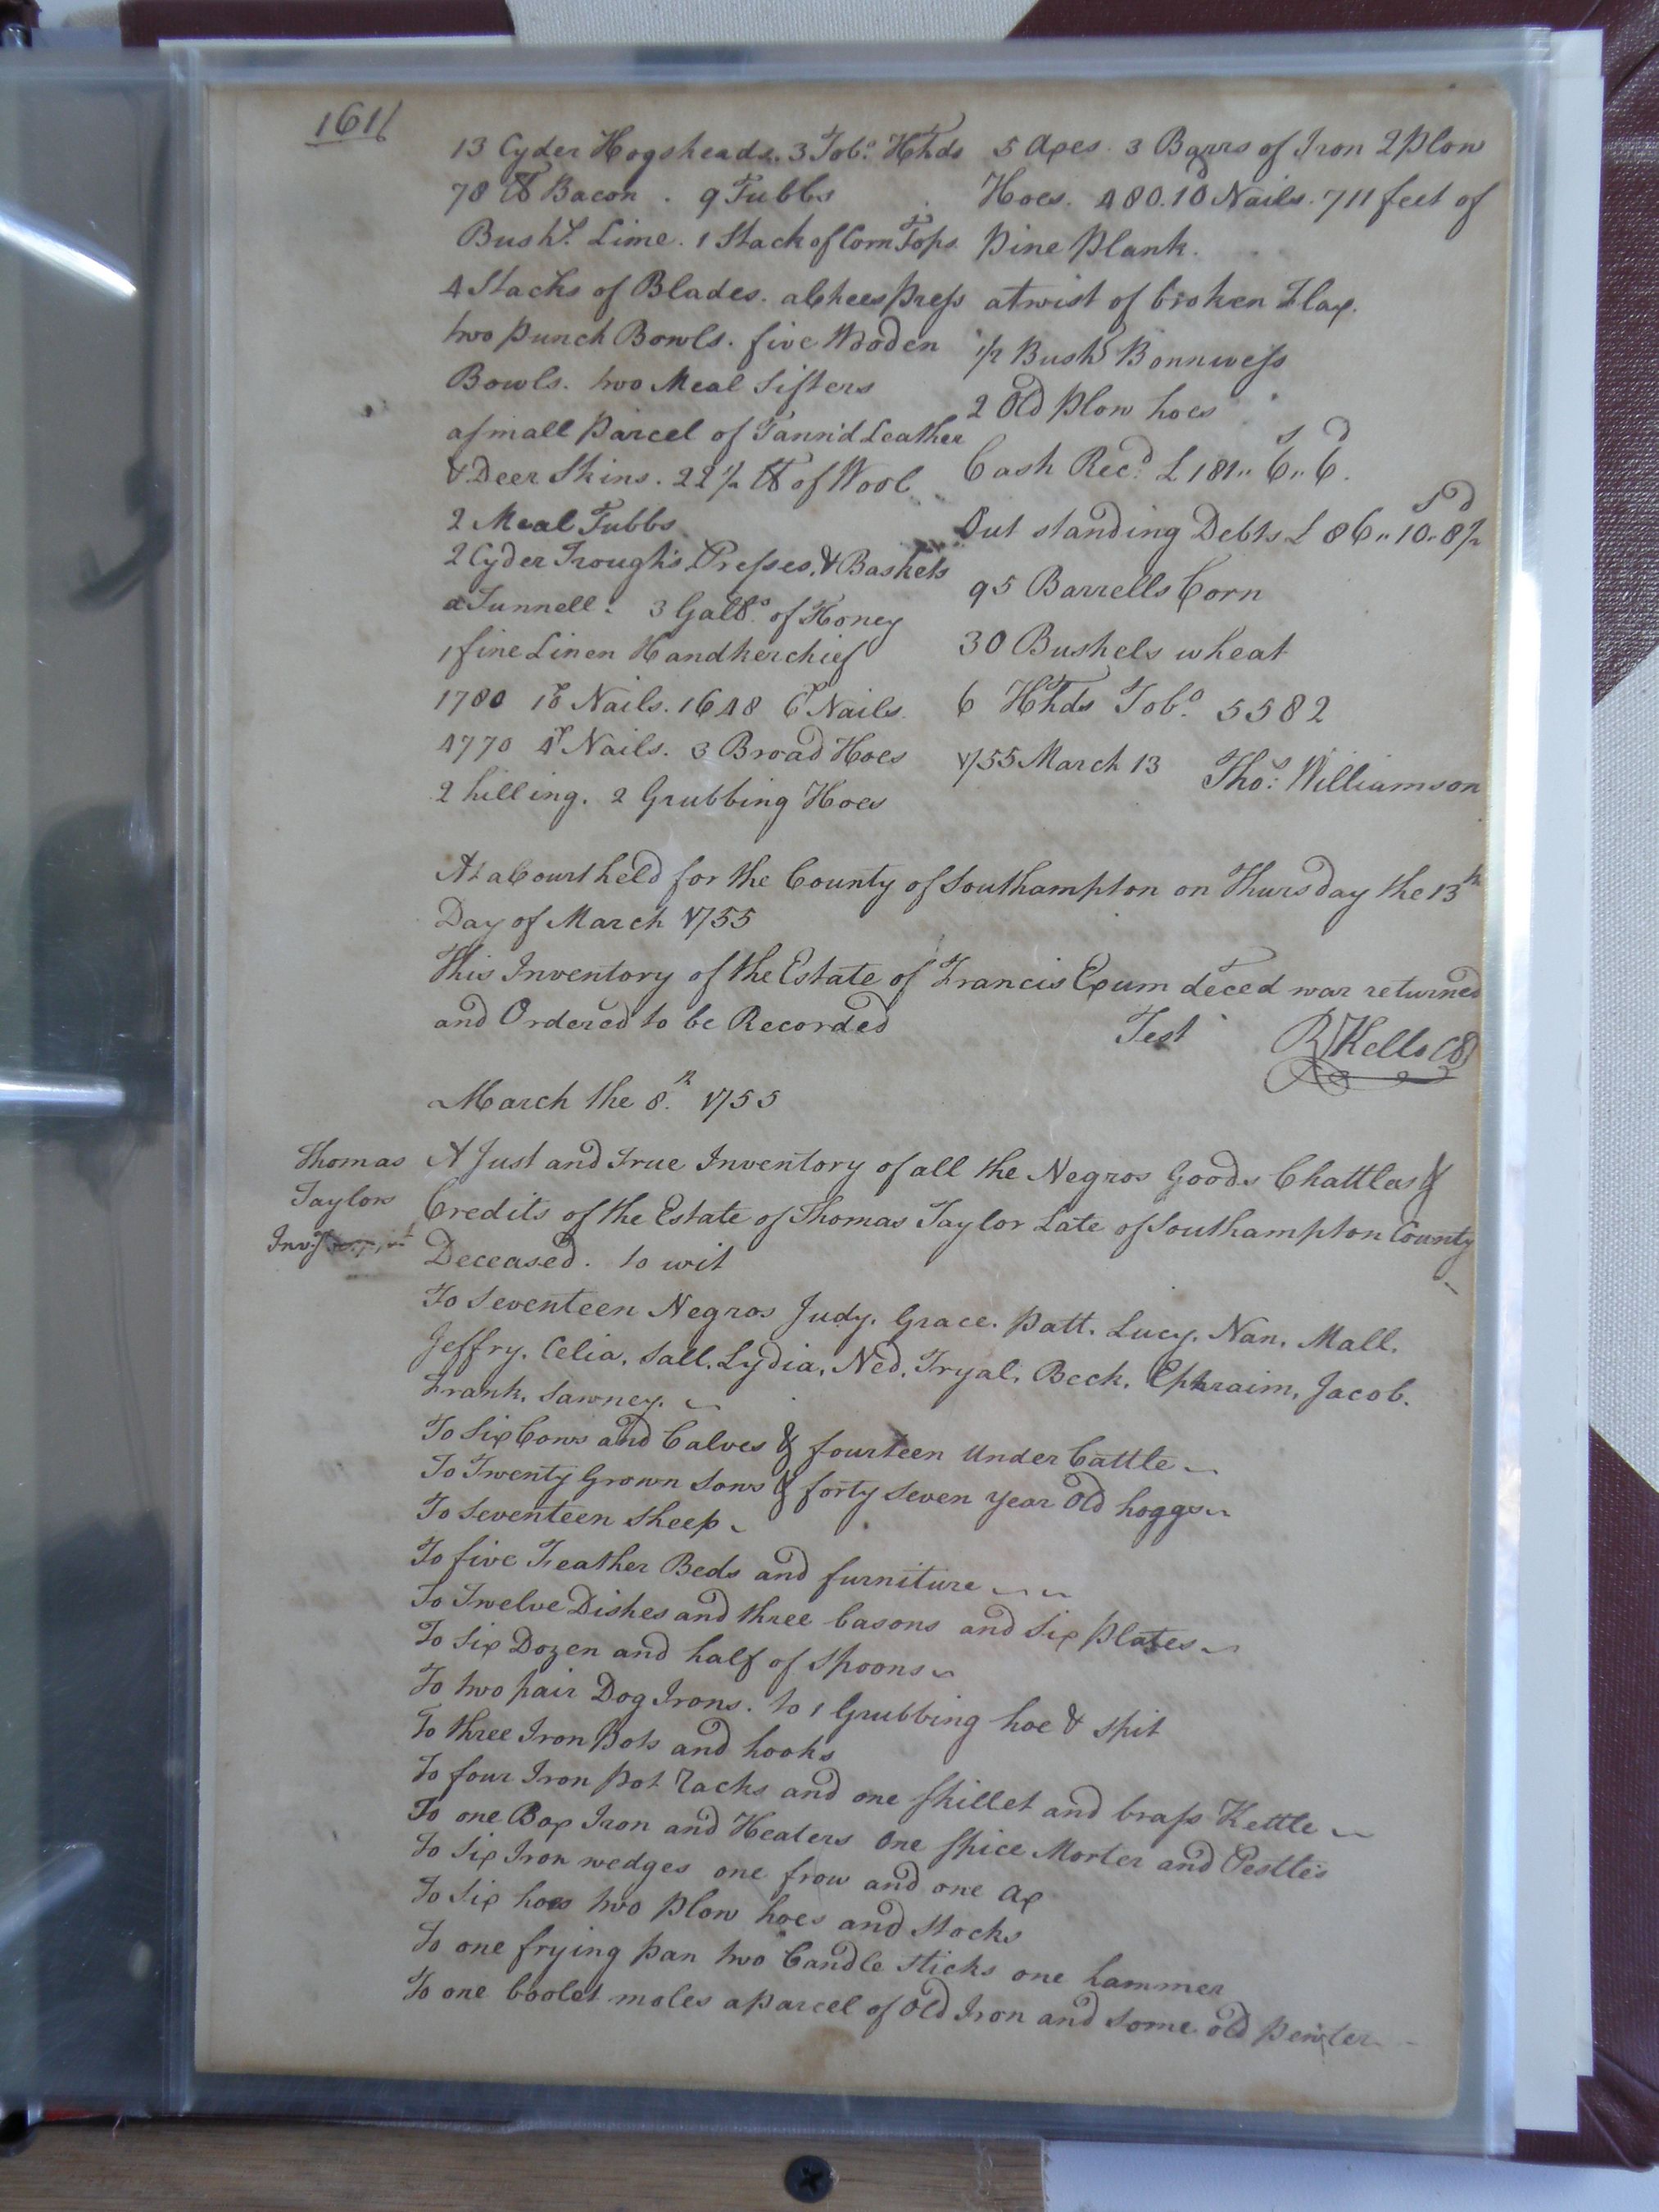 161
13 Cyder Hogsheads. 3 Tobo. Hhds
78 lb Bacon. 9 Tubbs
Bushl. Lime. 1 Stack of Corn Tops.
4 Stacks of Blades. a Chees Press
two Punch Bowls. five Wooden
Bowls. two Meal Sifters
a small Parcel of Tann'd Leather
& Deer Skins. 22 1/2 lb of Wool
2 Meal Tubbs
2 Cyder Troughs Presses, & Baskets
a Tunnell. 3 Galls. of Honey
1 fine Linen Handkerchief
1780 10d Nails. 1648 6d Nails.
4770 4d Nails. 3 Broad Hoes
2 hilling. 2 Grubbing Hoes
5 Axes. 3 Barrs of Iron 2 Plow
Hoes. 480. 10d Nails. 711 feet of
Pine Plank.
a twist of broken Flax.
1/2 Bushl Bonnwess
2 Old Plow hoes
Cash Recd. £ 181,, 6s,, 6d.
Out standing Debts £ 86,, 10s,, 8d 1/2
95 Barrells Corn
30 Bushels wheat
6 Hhds Tobo. 5582
1755 March 13 Thos: Williamson
At a Court held for the County of Southampton on Thursday the 13th
Day of March 1755
This Inventory of the Estate of Francis Exum deced was returned
and Ordered to be Recorded Test R Kello CC
March the 8th. 1755
Thomas
Taylors
Invy.
A Just and True Inventory of all the Negros Goods Chattles &
Credits of the Estate of Thomas Taylor Late of Southampton County
Deceased. to wit
To Seventeen Negros Judy. Grace. Patt. Lucy. Nan. Mall.
Jeffry. Celia. Sall. Lydia. Ned. Tryal. Beck. Ephraim. Jacob.
Frank. Sawney.
To Six Cows and Calves & fourteen Under Cattle
To Twenty Grown Sows & forty Seven year Old hoggs
To Seventeen Sheep
To five Feather Beds and furniture
To Twelve Dishes and three basons and Six Plates
To Six Dozen and half of Spoons
To two pair Dog Irons. to 1 Grubbing hoe & Spit
To three Iron Pots and hooks
To four Iron Pot Racks and one Skillet and brass Kettle
To one Box Iron and Heaters One Spice Morter and Pestles
To Six Iron wedges one frow and one Ax
To Six hoes two Plow hoes and Stocks
To one frying pan two Candle Sticks one hammer
To one boolet moles a parcel of Old Iron and Some old Pewter